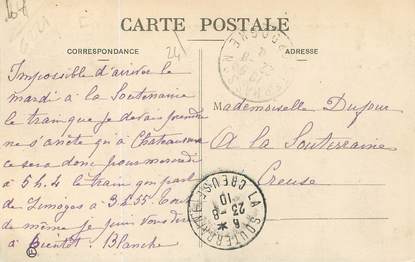 CARTE POSTALE
CORRESPONDANCE
ADRESSE
24
Impossible d'arriver le
mardi à la Souterraine
le train que je devais prendre
ne s'arrête qu'à Chateauroux
ce sera donc pour mercredi
à 5h.4 le train qui part
de Limoges à 3h55 Tout
de même je puis vous dire
à Bientôt. Blanche
Mademoiselle Dufour
A la Souterraine
Creuse
LA SOUTERRAINE
CREUSE
6
23-8
10